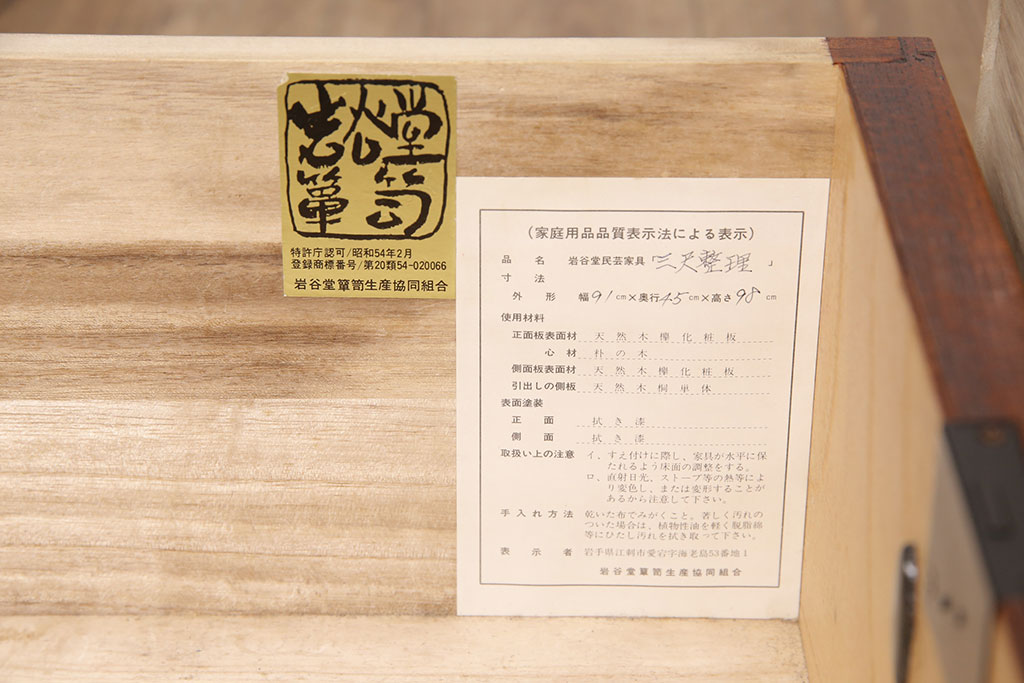 岩谷堂
簞笥
特許庁認可/昭和54年2月
登録商標番号/第20類54-020066
岩谷堂簞笥生産協同組合
(家庭用品品質表示法による表示)
品名 岩谷堂民芸家具「三尺整理」
寸法
外形 幅91cm×奥行45cm×高さ98cm
使用材料
正面板表面材 天然木欅化粧板
心材 朴の木
側面板表面材 天然木欅化粧板
引出しの側板 天然木桐単体
表面塗装
正面 拭き漆
側面 拭き漆
取扱い上の注意 イ、すえ付けに際し、家具が水平に保
たれるよう床面の調整をする。
ロ、直射日光、ストーブ等の熱等によ
り変色し、または変形することが
あるから注意して下さい。
手入れ方法 乾いた布でみがくこと。著しく汚れの
ついた場合は、植物性油を軽く脱脂綿
等にひたし汚れを拭き取って下さい。
表示者 岩手県江刺市愛宕字海老島53番地1
岩谷堂簞笥生産協同組合